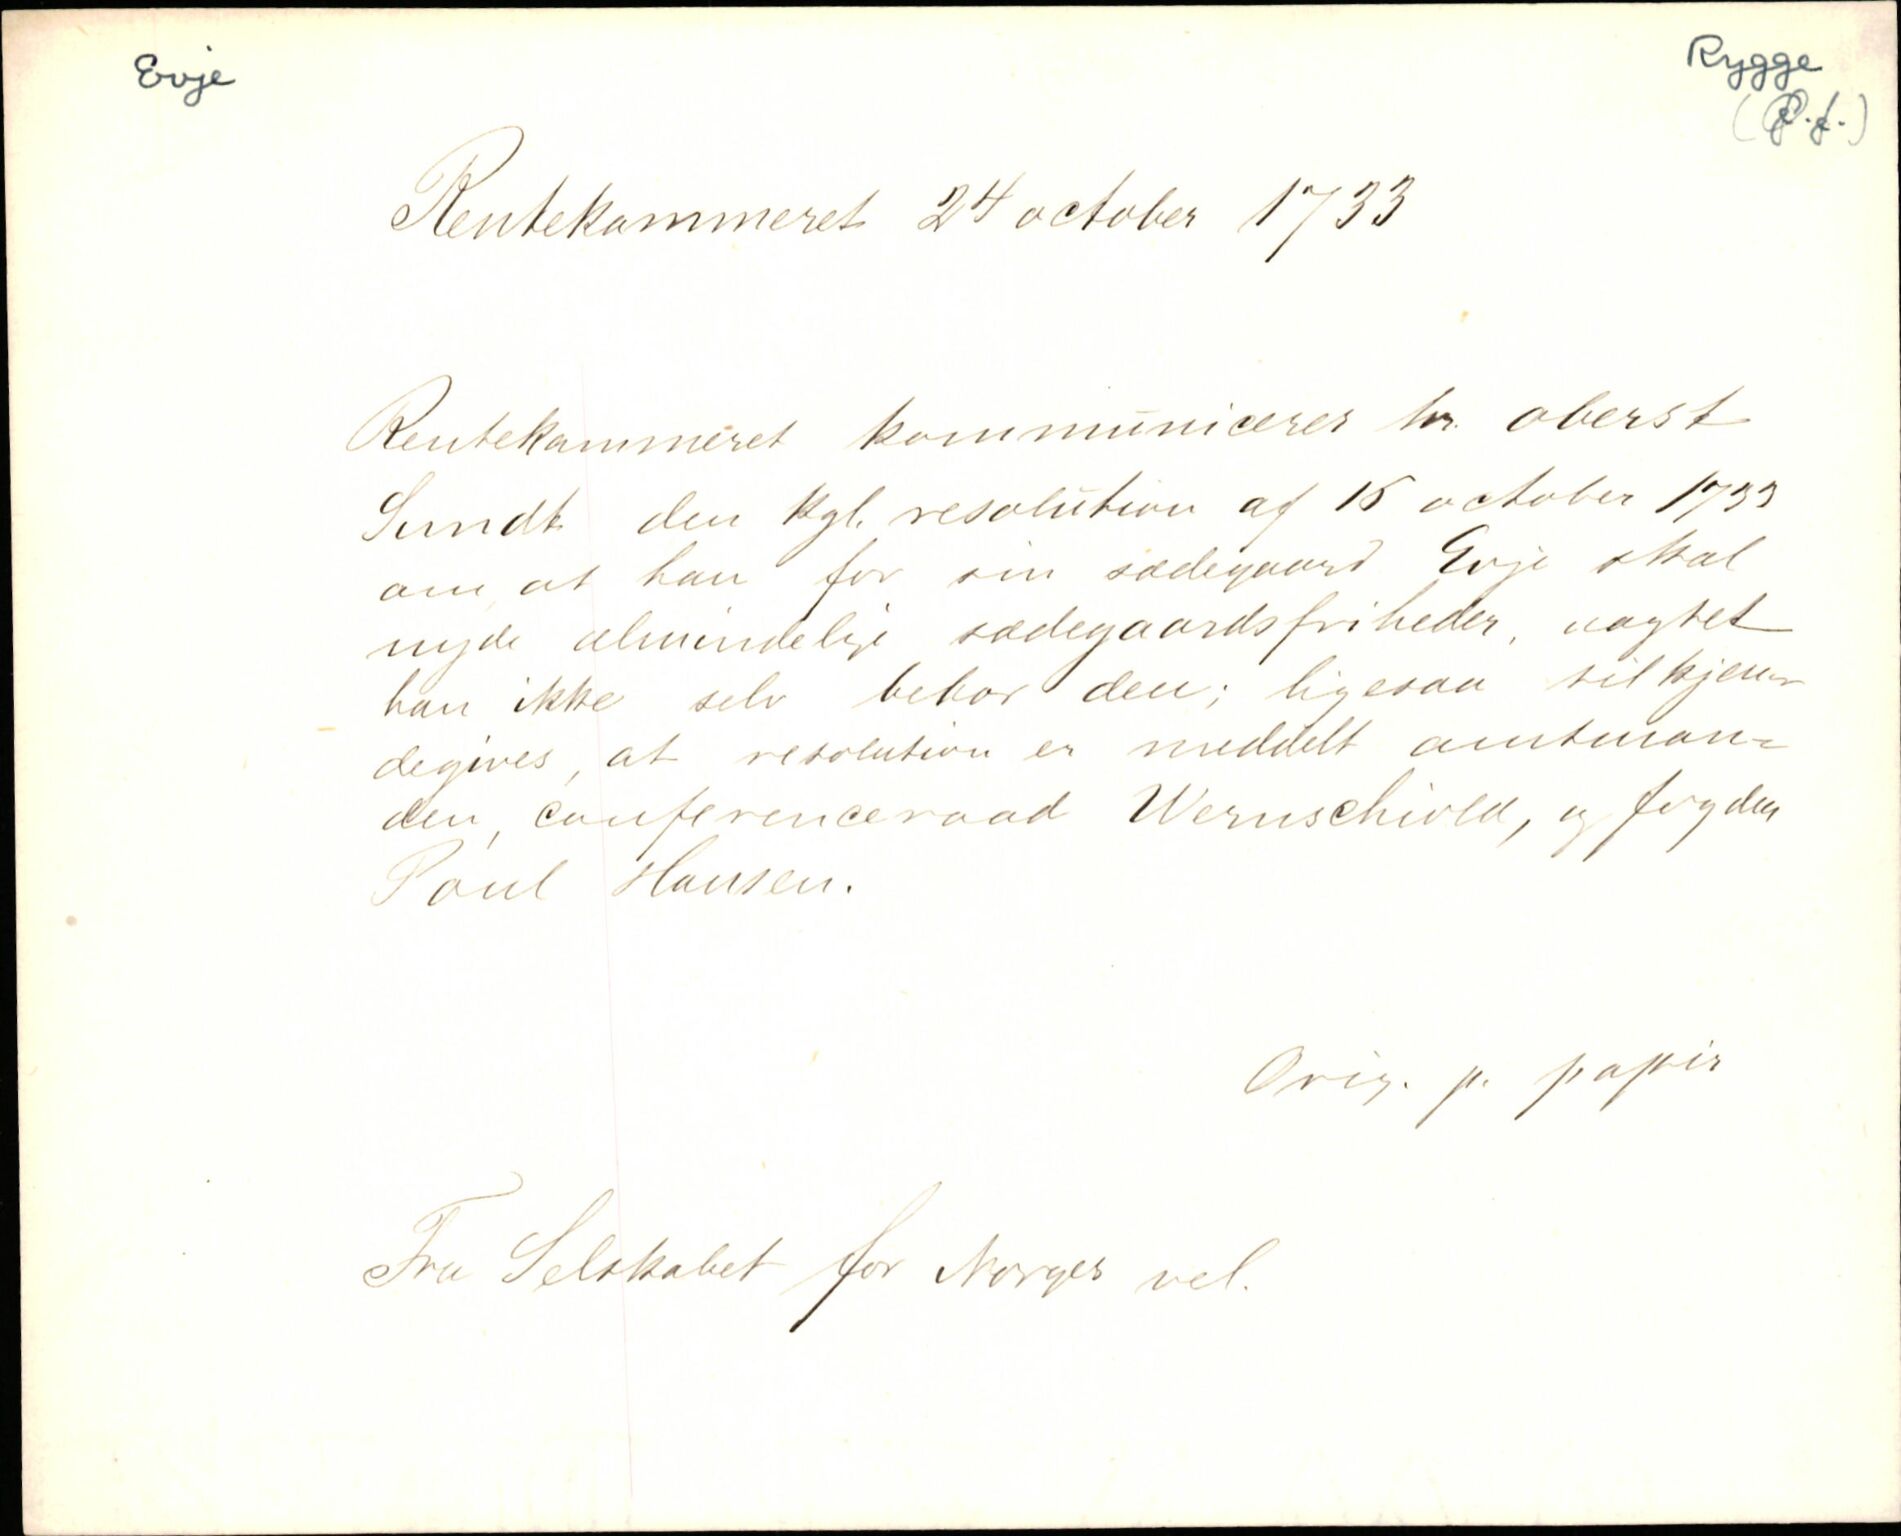 Evje
Rygge
(Ø.f.)
Rentekammeret 24 october 1733
Rentekammeret kommunicerer hr. oberst
Sundt den kgl. resolution af 16 october 1733
om, at han for sin sædegaard Evje skal
nyde almindelige sædegaardsfriheder, uagtet
han ikke selv bebor den; ligesaa tilkjen-
degives, at resolution er meddelt amtman=
den, conferenceraad Wernschiold, og fogden
Poul Hansen.
Orig. p. papir
Fra Selskabet for Norges vel.